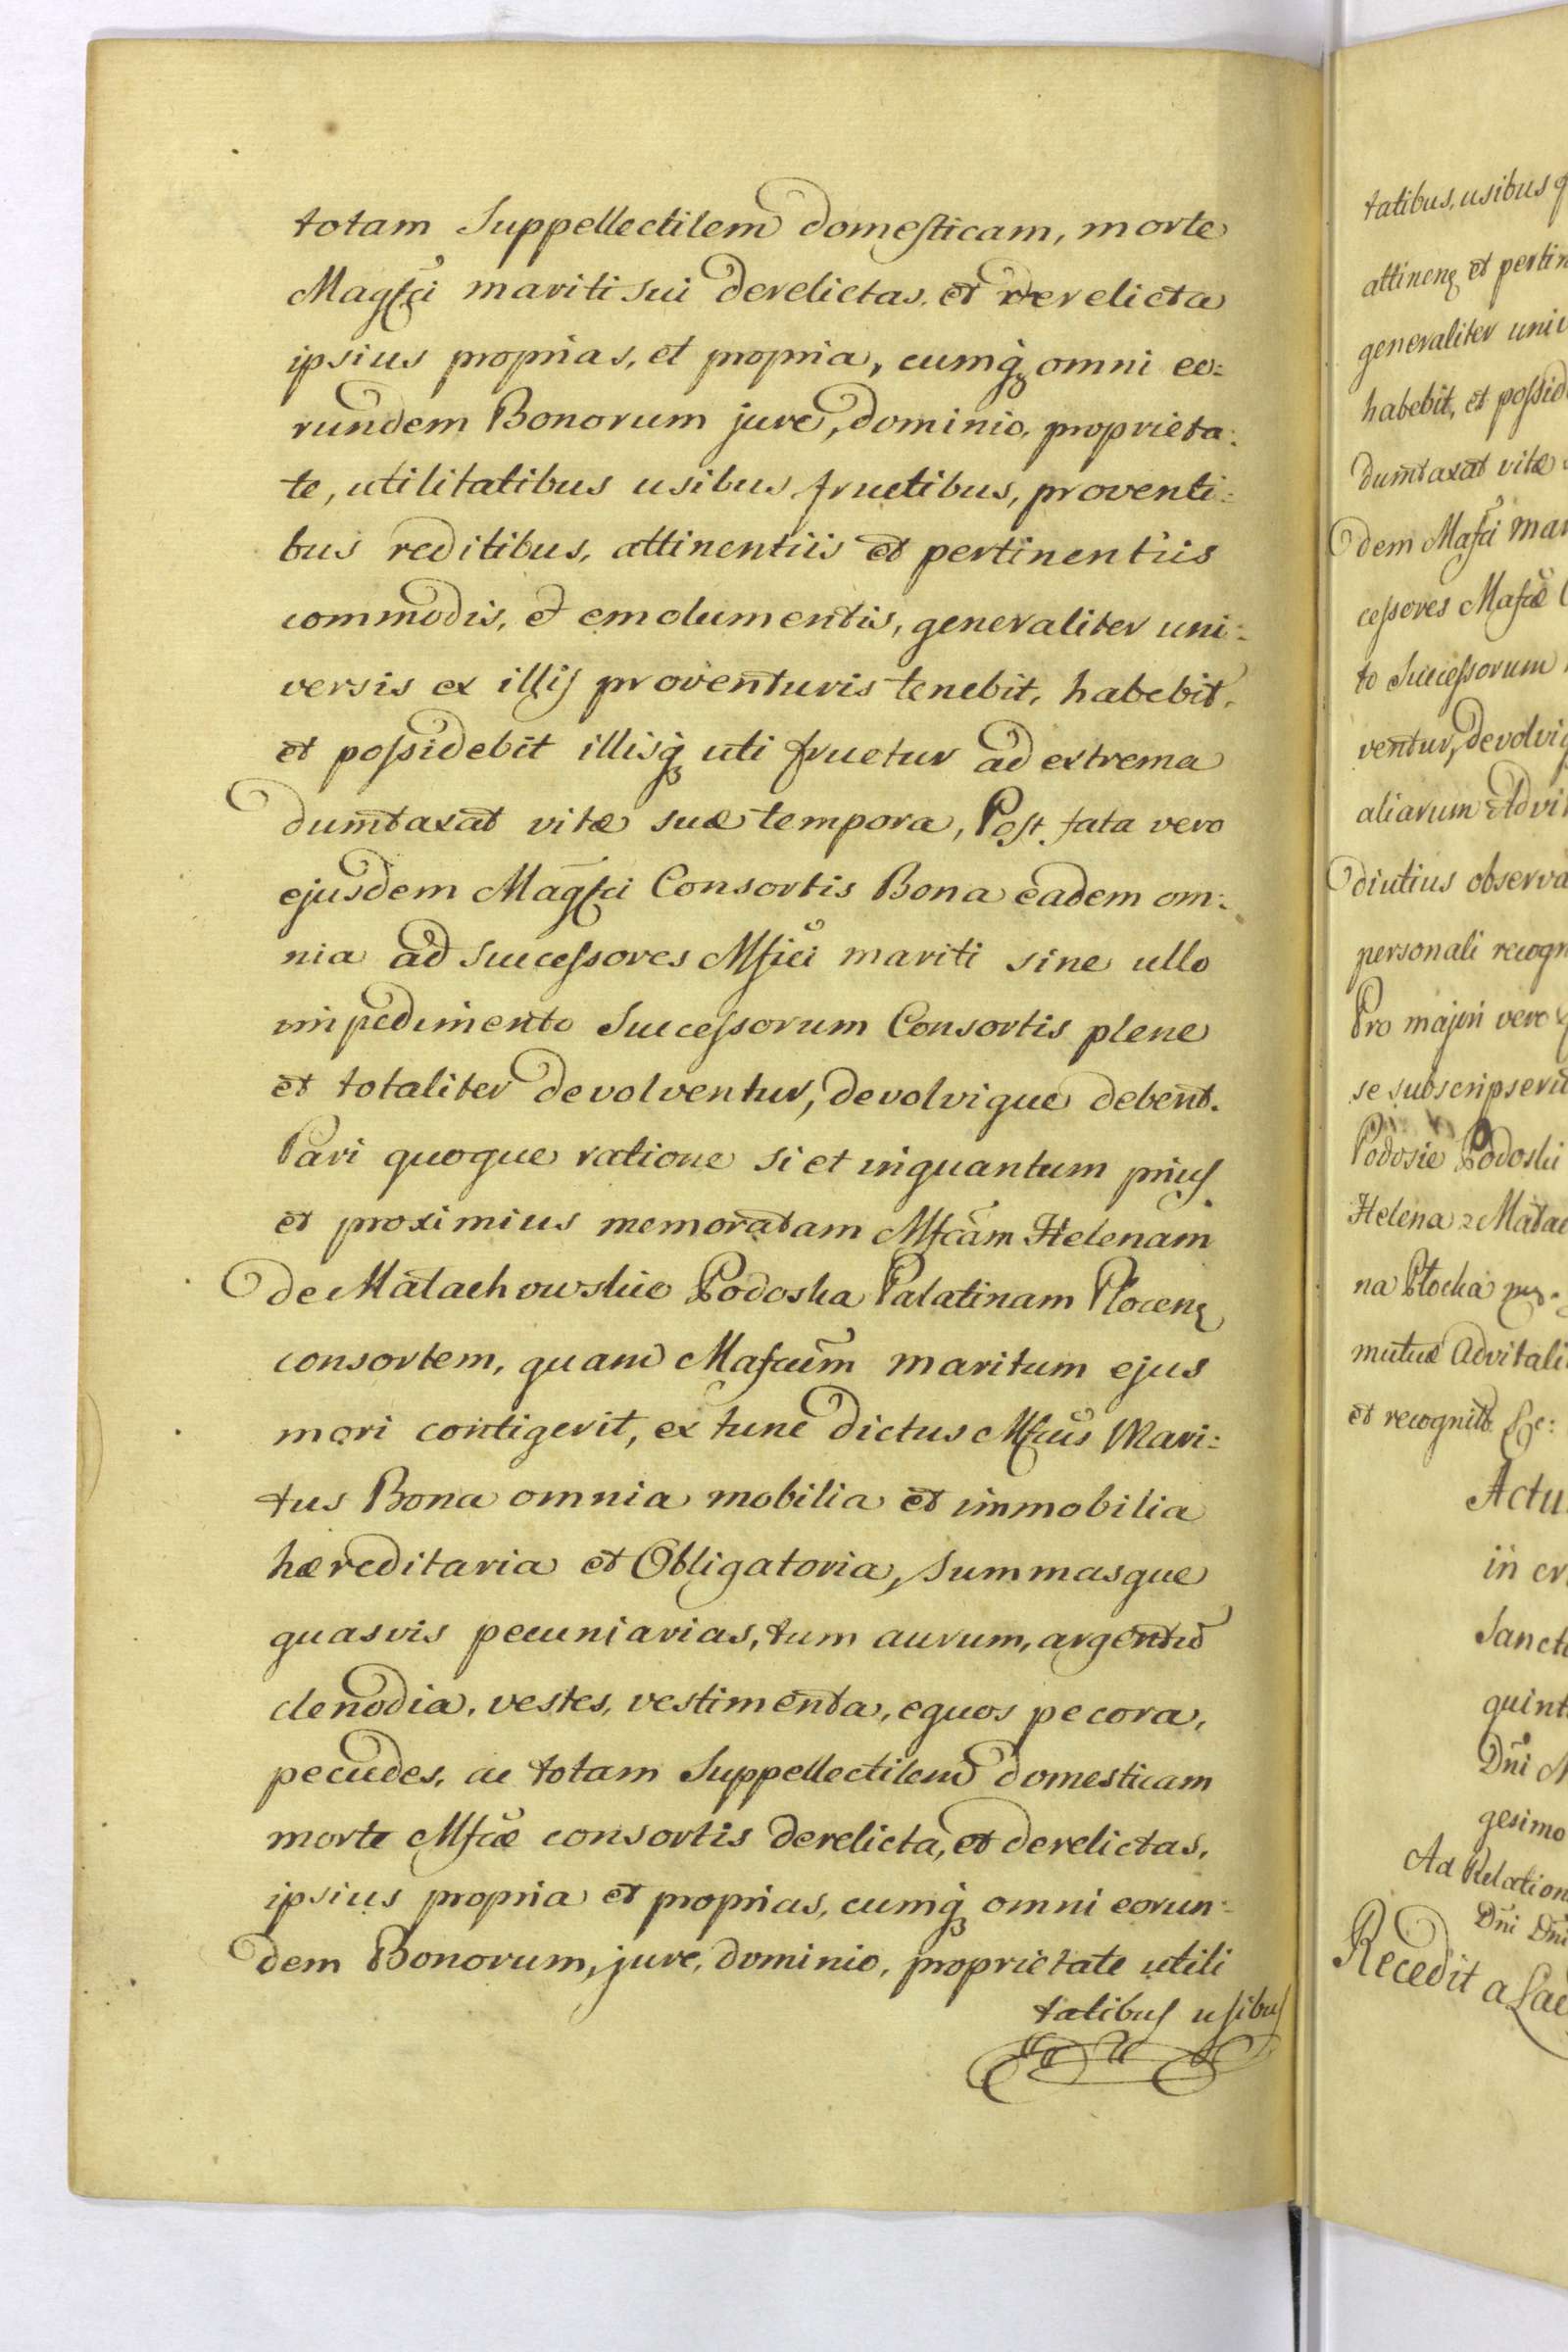 totam Suppellectilem domesticam, morte
Magfci mariti sui derelictas, et derelicta
ipsius proprias, et propria, cumq omni eo=
rundem Bonorum jure, dominio, proprieta=
te, utilitatibus usibus fructibus, proventi=
bus reditibus, attinentiis et pertinentiis
commodis, et emolumentis, generaliter uni=
versis ex illis proventuris tenebit, habebit,
et possidebit illisq uti fruetur ad extrema
dumtaxat vitæ suæ tempora, Post fata vero
ejusdem Magfci Consortis Bona eadem om=
nia ad successores Mfici mariti sine ullo
impedimento Successorum Consortis plene
et totaliter devolventur, devolvique debent.
Pari quoque ratione si et inquantum prius
et proximius memoratam Mfcam Helenam
de Małachowskie Podoska Palatinam Plocen
consortem, quam Mafcum maritum ejus
mori contigerit, ex tunc dictus Mfcus Mari=
tus Bona omnia mobilia et immobilia
hæreditaria et Obligatoria, Summasque
quasvis pecuniarias, tum aurum, argentum
clenodia, vestes, vestimenta, equos pecora,
pecudes, ac totam Suppellectilem domesticam
morte Mfcæ consortis derelicta, et derelictas,
ipsius propria et proprias, cumq omni eorun=
dem Bonorum, jure, dominio, proprietate utili
tatibus usibus
tatibus, usibus
attinen et pertin
generaliter univ
habebit, et possid
dumtaxat vitæ
dem Mafci mar
cessores Mafcæ
to Successorum
ventur, devolviq
aliarum Advi
diutius observa
personali recogn
Pro majori vero
se subscripseru
Podosie Podoski
Helena z Małac
na Płocka
mutuæ Advitali
et recognitt &c:
Actu
in cr
Sanct
quint
Dni M
gesimo
Ad Relation
Dni Dni
Recedit a Lae